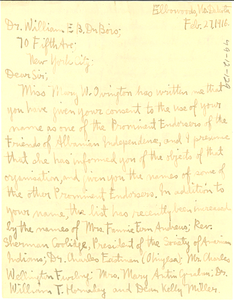 Ellsworth,
Feb. 27, 1918
Dr. William E. B. DuBois,
70 Fifth Ave.
New York City
Dear Sir,
Miss Mary N. Ovington has written me that
you have given your consent to the use of your
name as one of the Prominent Endorsers of the
Friends of Albanian Independence, and I presume
that she has informed you of the objects of that
organization, and given you the names of some of
the other Prominent Endorsers. In addition to
your name, the list has recently been increased
by the names of Mrs. Andrews; Rev.
Sherman Coolidge, President of the Society of American
Indians; Dr. Charles Eastman (Ohiyesa); Mr. Charles
Mrs. Mary Austin; Dr.
William T. Hornaday and Dean Kelly Miller.